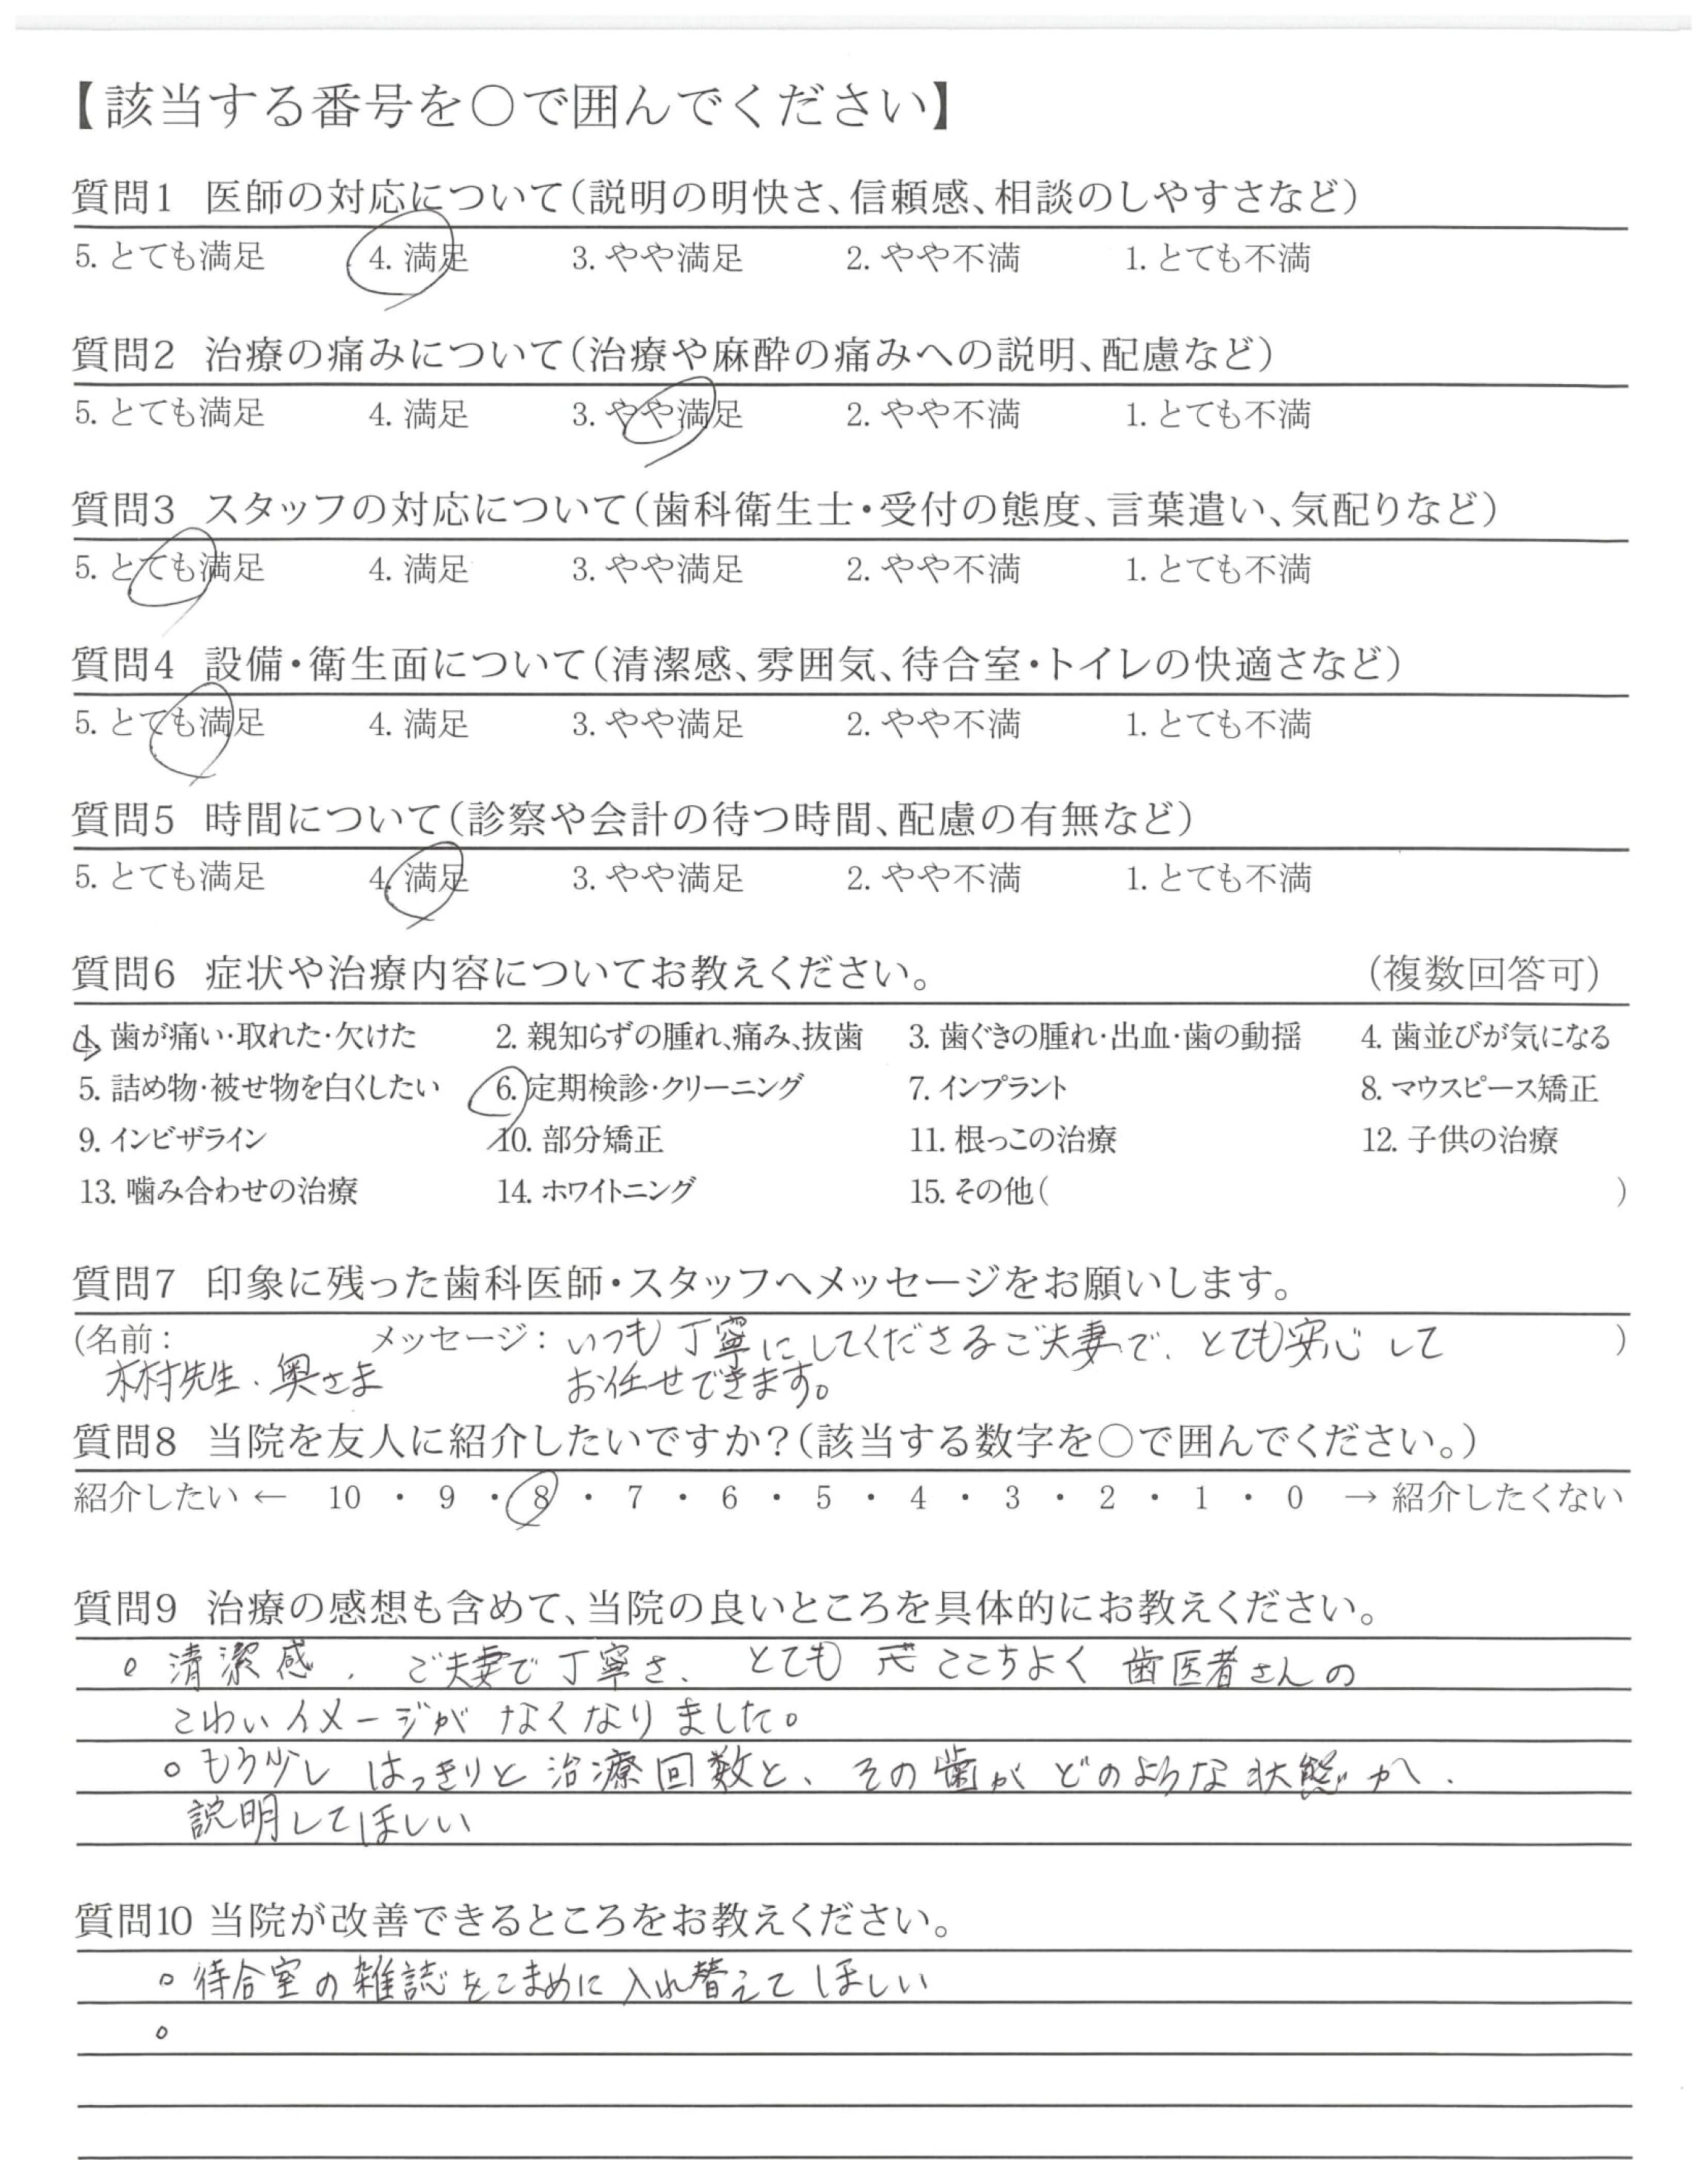 【該当する番号を○で囲んでください】
質問1 医師の対応について(説明の明快さ、信頼感、相談のしやすさなど)
5. とても満足 4. 満足 3. やや満足 2. やや不満 1. とても不満
質問2 治療の痛みについて(治療や麻酔の痛みへの説明、配慮など)
5. とても満足 4. 満足 3. やや満足 2. やや不満 1. とても不満
質問3 スタッフの対応について(歯科衛生士・受付の態度、言葉遣い、気配りなど)
5. とても満足 4. 満足 3. やや満足 2. やや不満 1. とても不満
質問4 設備・衛生面について(清潔感、雰囲気、待合室・トイレの快適さなど)
5. とても満足 4. 満足 3. やや満足 2. やや不満 1. とても不満
質問5 時間について(診察や会計の待つ時間、配慮の有無など)
5. とても満足 4. 満足 3. やや満足 2. やや不満 1. とても不満
質問6 症状や治療内容についてお教えください。 (複数回答可)
1. 歯が痛い・取れた・欠けた 2. 親知らずの腫れ、痛み、抜歯 3. 歯ぐきの腫れ・出血・歯の動揺 4. 歯並びが気になる
5. 詰め物・被せ物を白くしたい 6. 定期検診・クリーニング 7. インプラント 8. マウスピース矯正
9. インビザライン 10. 部分矯正 11. 根っこの治療 12. 子供の治療
13. 噛み合わせの治療 14. ホワイトニング 15. その他( )
質問7 印象に残った歯科医師・スタッフへメッセージをお願いします。
(名前: メッセージ: いつも丁寧にしてくださるご夫妻で、とても安心して )
木村先生・奥さま お任せできます。
質問8 当院を友人に紹介したいですか?(該当する数字を○で囲んでください。)
紹介したい ← 10 ・ 9 ・ 8 ・ 7 ・ 6 ・ 5 ・ 4 ・ 3 ・ 2 ・ 1 ・ 0 → 紹介したくない
質問9 治療の感想も含めて、当院の良いところを具体的にお教えください。
。清潔感、ご夫妻で丁寧さ、とても ここちよく 歯医者さんの
こわいイメージがなくなりました。
。もう少し はっきりと治療回数と、その歯がどのような状態か、
説明してほしい
質問10 当院が改善できるところをお教えください。
。待合室の雑誌をこまめに入れ替えてほしい
。